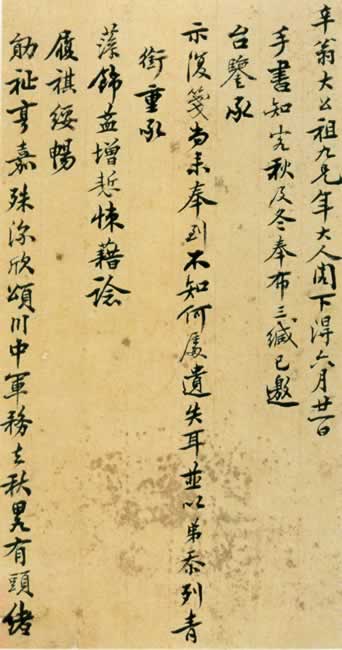 辛翁大公祖九兄年大人閣下得六月廿日
手書知客秋及冬奉布三緘已邀
台鑒承
示復箋尚未奉到不知何處遺失耳並以弟忝列青
銜重承
藻飾益增慙悚藉諗
履祺綏暢
勛祉亨嘉殊深欣頌川中軍務去秋略有頭緒